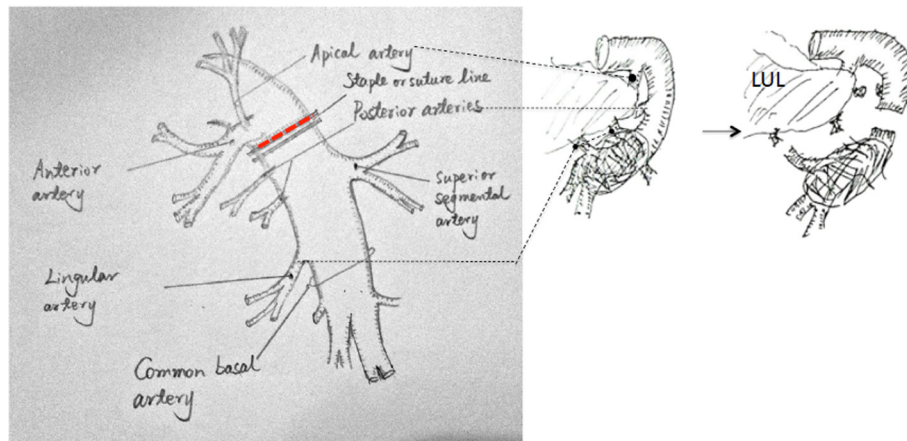 Apical artery
Staple or suture line
Posterior arteries
Anterior
artery
superior
segmental
artery
Lingular
artery
Common basal
artery
LUL